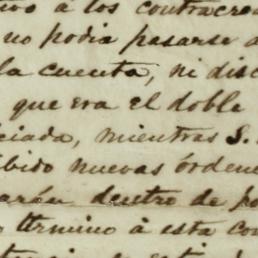 á los contracre
no podia pasarse a
la cuenta, ni disc
que era el doble
ciada, mientras S.
bido nuevas órdene
arán dentro de po
termino á esta con